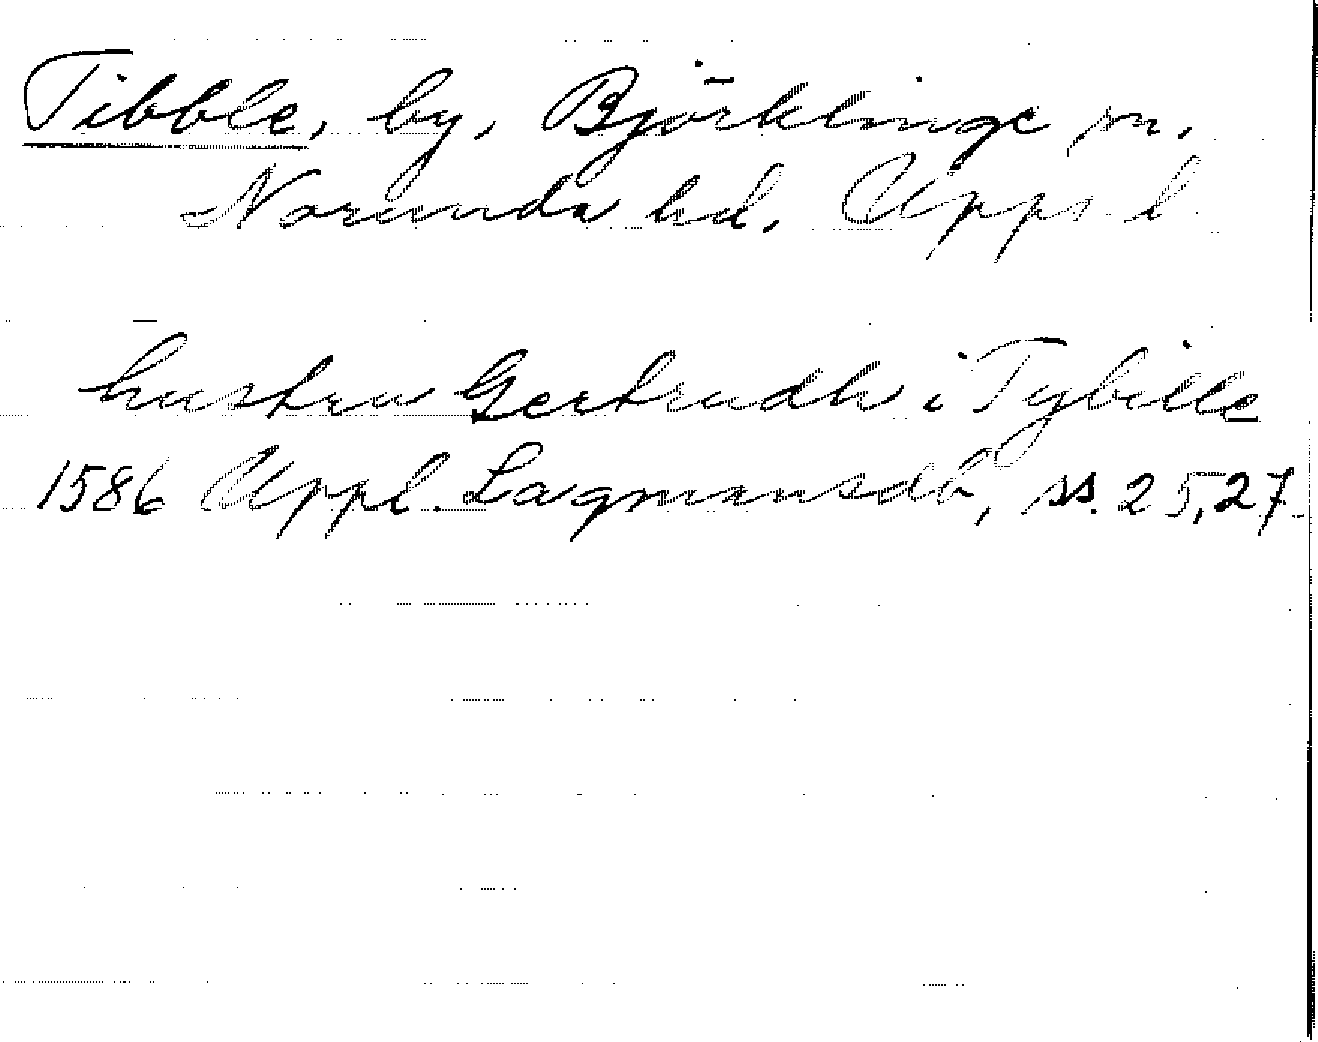 Tibble, by, Björklinge sn.
Norunda hd. Upps. l.
hustru Gertrudh i Tybille
1586 Uppl. Lagmansdb, ss. 25,27